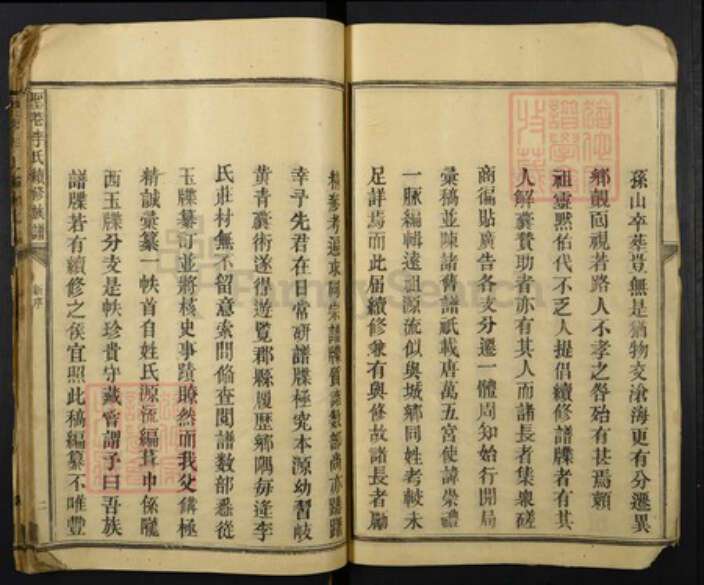 孫山卒葬豈無是猶物交滄海更有分遷異
鄉覿面視若路人不孝之咎殆有甚焉賴
祖靈默佑代不乏人提倡續修譜牒者有其
人解囊贊助者亦有其人而諸長者集衆磋
商徧貼廣告各支分遷一體周知始行開局
彙稿並陳諸舊譜祇載唐萬五宮使諱崇禮
一脉編輯遠祖源流似與城鄉同姓考較未
足詳焉而此屆續修兼有與修故諸長者勵
幸予先君在日常硏譜牒極究本源幼習岐
黃青囊術遂得遊覽郡縣履歷鄉隅每逢李
氏莊村無不留意索問備查閱譜數部悉從
玉牒纂訂並將核史事蹟瞭然而我父備極
精誠彙纂一帙首自姓氏源流編葺巾係隴
西玉牒分支是帙珍貴守藏嘗謂予曰吾族
譜牒若有續修之俟宜照此稿編纂不唯豐
李氏續修族譜
新序
二
FamilySearch